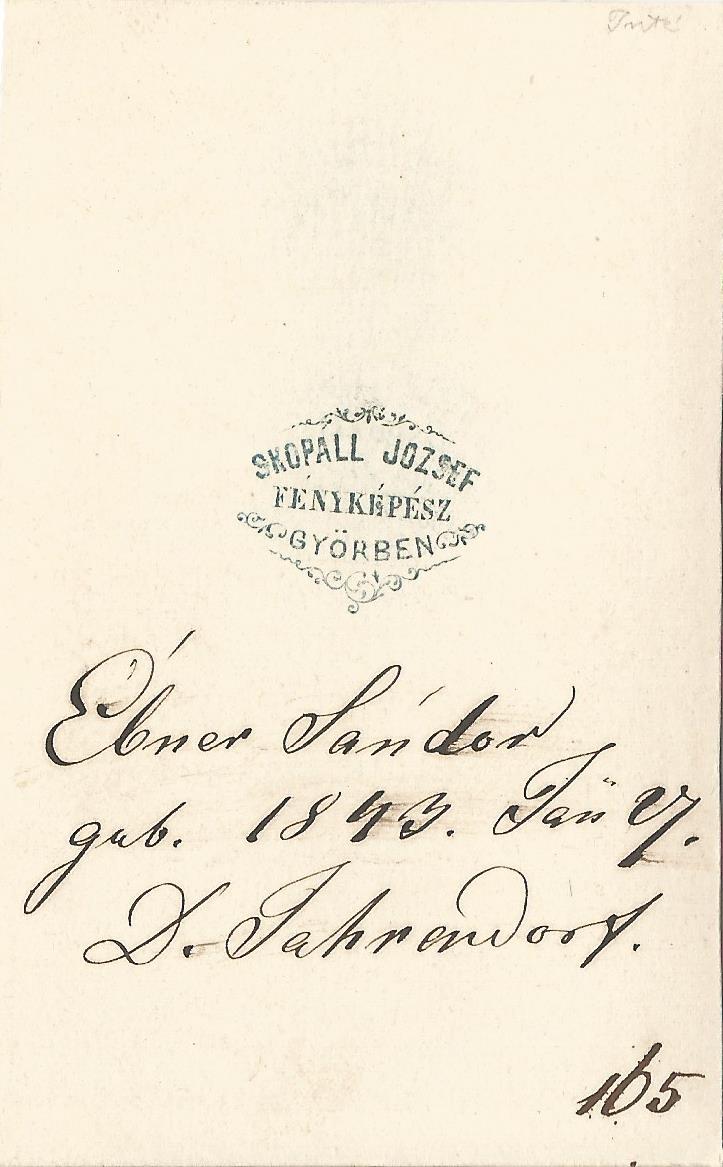 SKOPÁLL JÓZSEF
FÉNYKÉPÉSZ
GYÖRBEN
Ébner Sándor
geb. 1843. Jän 27.
D. Jahrendorf.
165